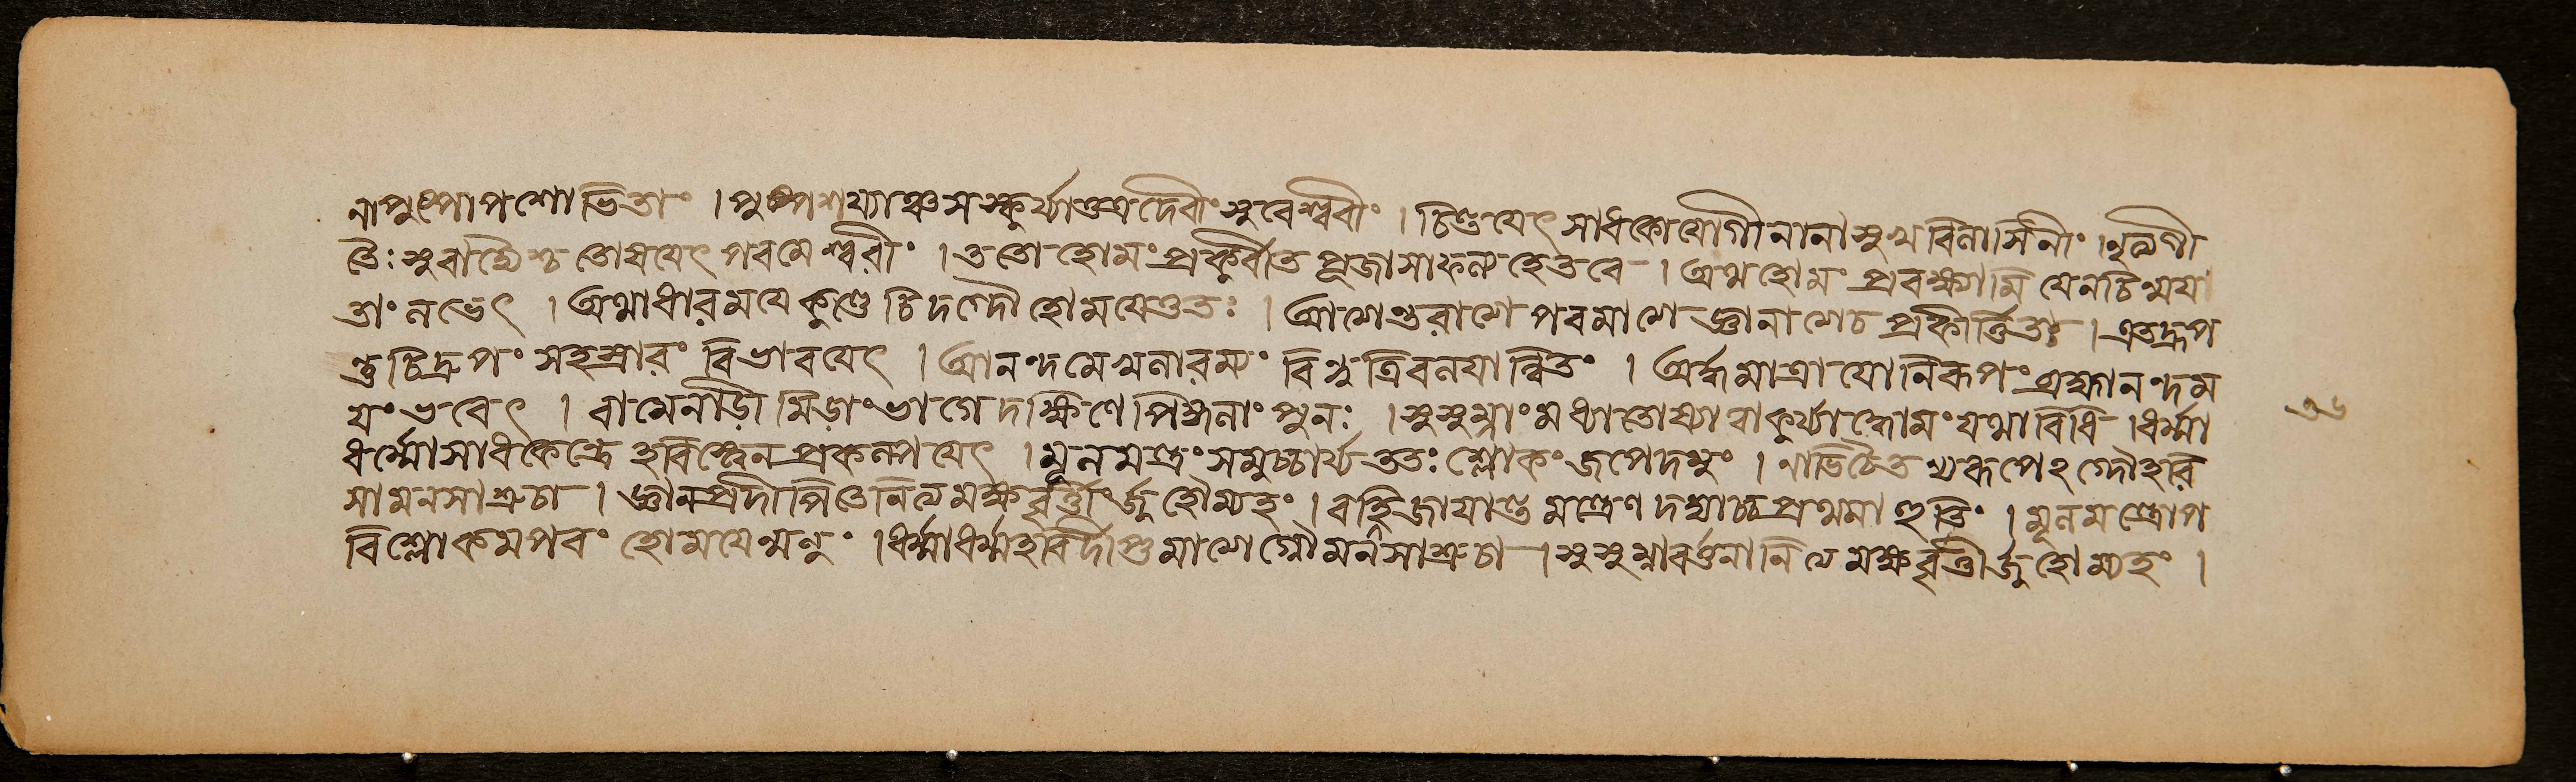 নাপুষ্পোপশোভিতাং । পুষ্পশয্যাঞ্চসংস্কুর্য্যাত্তত্রদেবীং সুরেশ্বরীং । চিন্তয়েৎ সাধকোযোগী নানাসুখবিলাসিনীং । নৃত্যগী
তৈঃ সুবাদ্যৈশ্চ তোষয়েৎ পরমেশ্বরীং । ততো হোমং প্রকুর্বীত পূজাসাফল্যহেতবে । অথহোমং প্রবক্ষ্যামি যেনচিন্ময়
তাং লভেৎ । অথাধারময়ে কুণ্ডে চিদগ্নৌ হোময়েত্ততঃ । আত্মান্তরাত্মা পরমাত্মা জ্ঞানাত্মাচ প্রকীর্ত্তিতাঃ । এতদ্রূপ
ন্তু চিদ্রূপং সহস্রারং বিভাবয়েৎ । আনন্দমেখলারম্যং বিন্দুত্রিবলয়ান্বিতং । অর্দ্ধমাত্রা যোনিরূপং ব্রহ্মানন্দম
য়ং ভবেৎ । বামেনাড়ী মিড়াংভাগে দক্ষিণে পিঙ্গলাং পুনঃ । সুসুম্নাং মধ্যতোধ্যাত্বাকুর্য্যাদ্ধোমং যথাবিধি । ধর্ম্মা
ধর্ম্মৌসাধকেন্দ্রো হবিস্ত্বেন প্রকল্পয়েৎ । মূলমন্ত্রং সমুচ্চার্য্য ততঃ শ্লোকং জপেদমুং । নাভিচৈতন্যরূপেহগ্নৌহবি
সামনসাশ্রুচা । জ্ঞানপ্রদীপিতেনিত্যমক্ষবৃত্তীর্জুহোম্যহং । বহ্নিজায়ান্ত মন্ত্রেণ দদ্যাচ্চপ্রথমাহুতিং । মূলমন্ত্রোপ
রিশ্লোকমপরং হোময়েন্মনুং । ধর্ম্মাধর্ম্মহবির্দীপ্তমাত্মাগ্নৌমনসাশ্রুচা । সুসুম্নাবর্ত্মনানিত্যমক্ষবৃত্তীর্জুহোম্যহং ।
৩৬